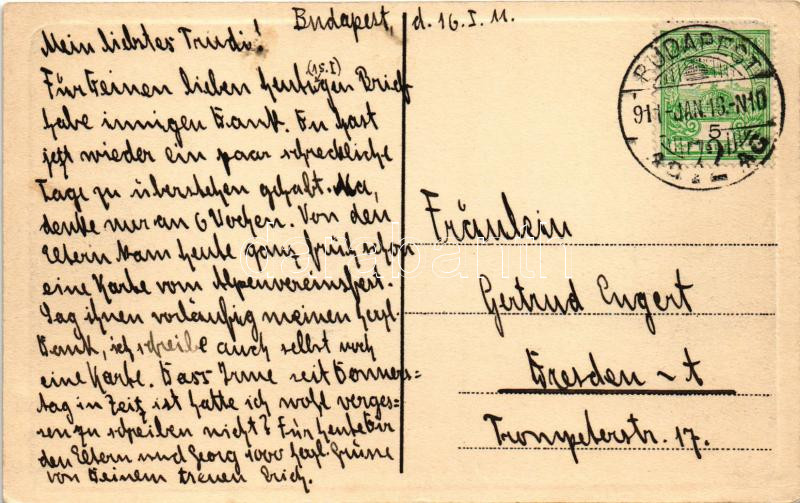 Budapest, d. 16. I. 11.
Mein liebstes Trudi!
(15.I)
Für Deinen lieben heutigen Brief
habe innigen Dank. Du hast
jetzt wieder ein paar schreckliche
Tage zu überstehen gehabt. Na,
denke nur an 6 Wochen. Von den
Eltern kam heute ganz früh schon
eine Karte vom Alpenvereinsfest.
Sag ihnen vorläufig meinen herzl.
Dank, ich schreibe auch selbst noch
eine Karte. Dass Irme seit Donners=
tag in Zeitz ist hatte ich wohl verges=
sen zu schreiben nicht? Für heute Dir
den Eltern und Georg 1000 herzl. Grüsse
von Deinem treuen Erich.
Fräulein
Gertrud Engert
Dresden - A
Trompeterstr. 17.
BUDAPEST
911 JAN. 16. N10
darabanth